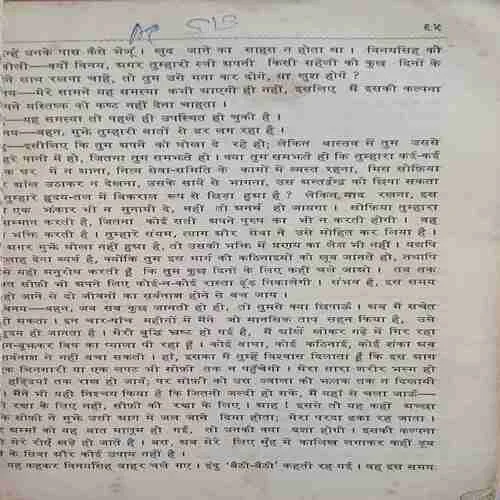 ६५
उन्हें उनके पास कैसे भेजूँ। खुद जाने का साहस न होता था। विनयसिंह को
बोली—क्यों विनय, अगर तुम्हारी स्त्री अपनी किसी सहेली को कुछ दिनों के
साथ रखना चाहे, तो तुम उसे मना कर दोगे, या खुश होगे?
मेरे सामने यह समस्या कभी आएगी ही नहीं, इसलिए मैं इसकी कल्पना
अपने मस्तिष्क को कष्ट नहीं देना चाहता।
यह समस्या तो पहले ही उपस्थित हो चुकी है।
बहन, मुझे तुम्हारी बातों से डर लग रहा है।
इसीलिए कि तुम अपने को धोखा दे रहे हो; लेकिन वास्तव में तुम उससे
गहरे पानी में हो, जितना तुम समझते हो। क्या तुम समझते हो कि तुम्हारा कई-कई
घर में न आना, नित्य सेवा-समिति के कामों में व्यस्त रहना, मिस सोफ़िया
आँख उठाकर न देखना, उसके साये से भागना, उस अन्तर्द्वन्द्व को छिपा सकता
तुम्हारे हृदय-तल में विकराल रूप से छिड़ा हुआ है? लेकिन याद रखना, इस
एक झंकार भी न सुनायी दे, नहीं तो अनर्थ हो जायगा। सोफ़िया तुम्हारा
सम्मान करती है, जितना कोई सती अपने पुरुष का भी न करती होगी। वह
भक्ति करती है। तुम्हारे संयम, त्याग और सेवा ने उसे मोहित कर लिया है।
अगर मुझे धोखा नहीं हुआ है, तो उसकी भक्ति में प्रणय का लेश भी नहीं। यद्यपि
सलाह देना व्यर्थ है, क्योंकि तुम इस मार्ग की कठिनाइयों को खूब जानते हो, तथापि
यही अनुरोध करती हूँ कि तुम कुछ दिनों के लिए कहीं चले जाओ। तब तक
सोफ़ी भी अपने लिए कोई-न-कोई रास्ता ढूँढ़ निकालेगी। संभव है, इस समय
हो जाने से दो जीवनों का सर्वनाश होने से बच जाय।
बहन, जब सब कुछ जानती ही हो, तो तुमसे क्या छिपाऊँ। अब मैं सचेत
हो सकता। इन चार-पाँच महीनों में मैंने जो मानसिक ताप सहन किया है, उसे
हृदय ही जानता है। मेरी बुद्धि भ्रष्ट हो गई है, मैं आँखें खोकर गढ़े में गिर रहा
जान-बूझकर विष का प्याला पी रहा हूँ। कोई बाधा, कोई कठिनाई, कोई शंका अब
सर्वनाश से नहीं बचा सकती। हाँ, इसका मैं तुम्हें विश्वास दिलाता हूँ कि इस आग
एक चिनगारी या एक लपट भी सोफ़ी तक न पहुँचेगी। मेरा सारा शरीर भस्म हो
हड्डियाँ तक राख हो जायँ; पर सोफ़ी को उस ज्वाला की झलक तक न दिखायी
मैंने भी यही निश्चय किया है कि जितनी जल्दी हो सके, मैं यहाँ से चला जाऊँ—
रक्षा के लिए नहीं, सोफ़ी की रक्षा के लिए। आह! इससे तो यह कहीं अच्छा
सोफ़ी ने मुझे उसी आग में जल जाने दिया होता, मेरा परदा ढका रह जाता।
अम्माँ को यह बात मालूम हो गई, तो उनकी क्या दशा होगी। इसकी कल्पना
मेरे रोएँ खड़े हो जाते हैं। बस, अब मेरे लिए मुँह में कालिख लगाकर कहीं डूब
के सिवा और कोई उपाय नहीं है।
यह कहकर विनयसिंह बाहर चले गए। इंदु 'बैठो-बैठो' कहती रह गई। वह इस समय